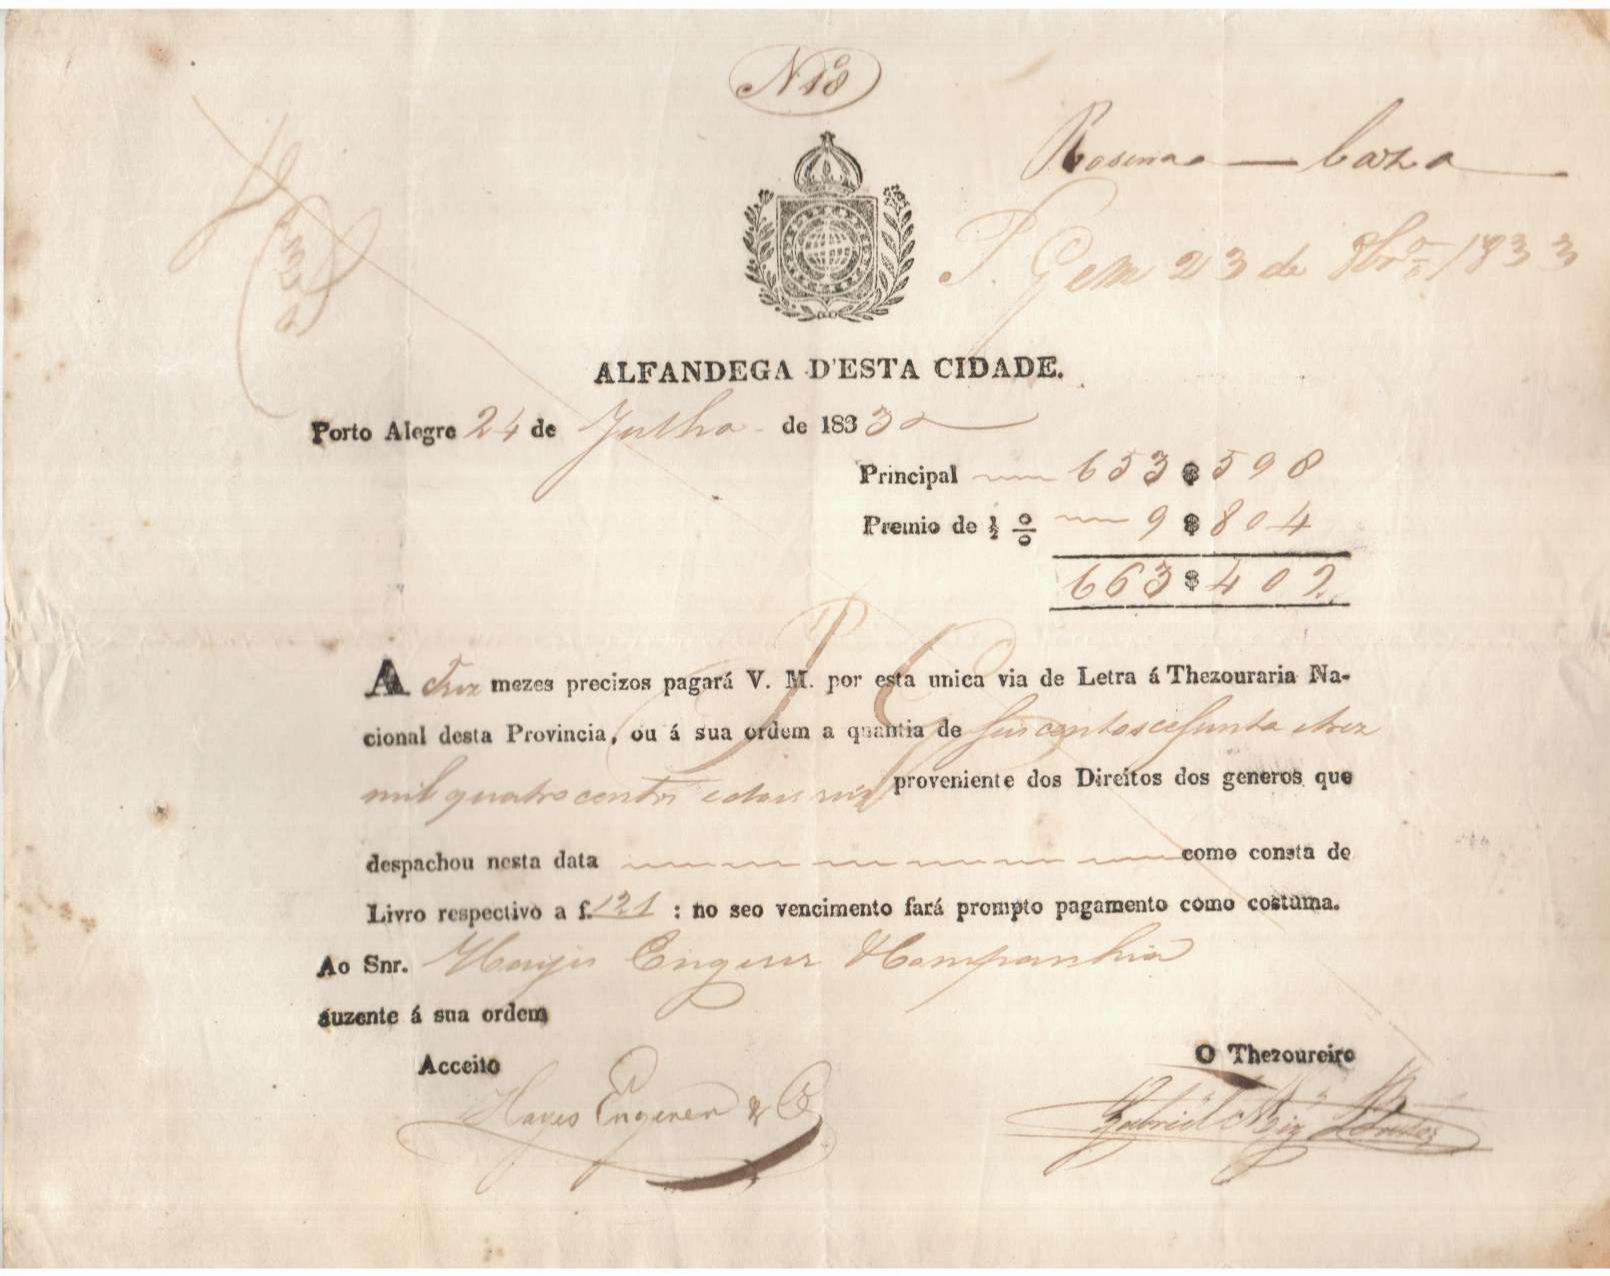 Nº 18
Caza
P. G em 23 de 8brº 1833
ALFANDEGA D'ESTA CIDADE.
Porto Alegre 24 de Julho de 1833
Principal 653$598
Premio de ½ % 9$804
663$402
A trez mezes precizos pagará V. M. por esta unica via de Letra á Thezouraria Na-
cional desta Provincia, ou á sua ordem a quantia de seis centos e sessenta e trez
mil quatro centos e dois reis proveniente dos Direitos dos generos que
despachou nesta data como consta do
Livro respectivo a f. 121 : no seo vencimento fará prompto pagamento como costuma.
Ao Snr. Hayes Engerer & Companhia
auzente á sua ordem
Acceito
O Thezoureiro
Hayes Engerer & Cª
Gabriel